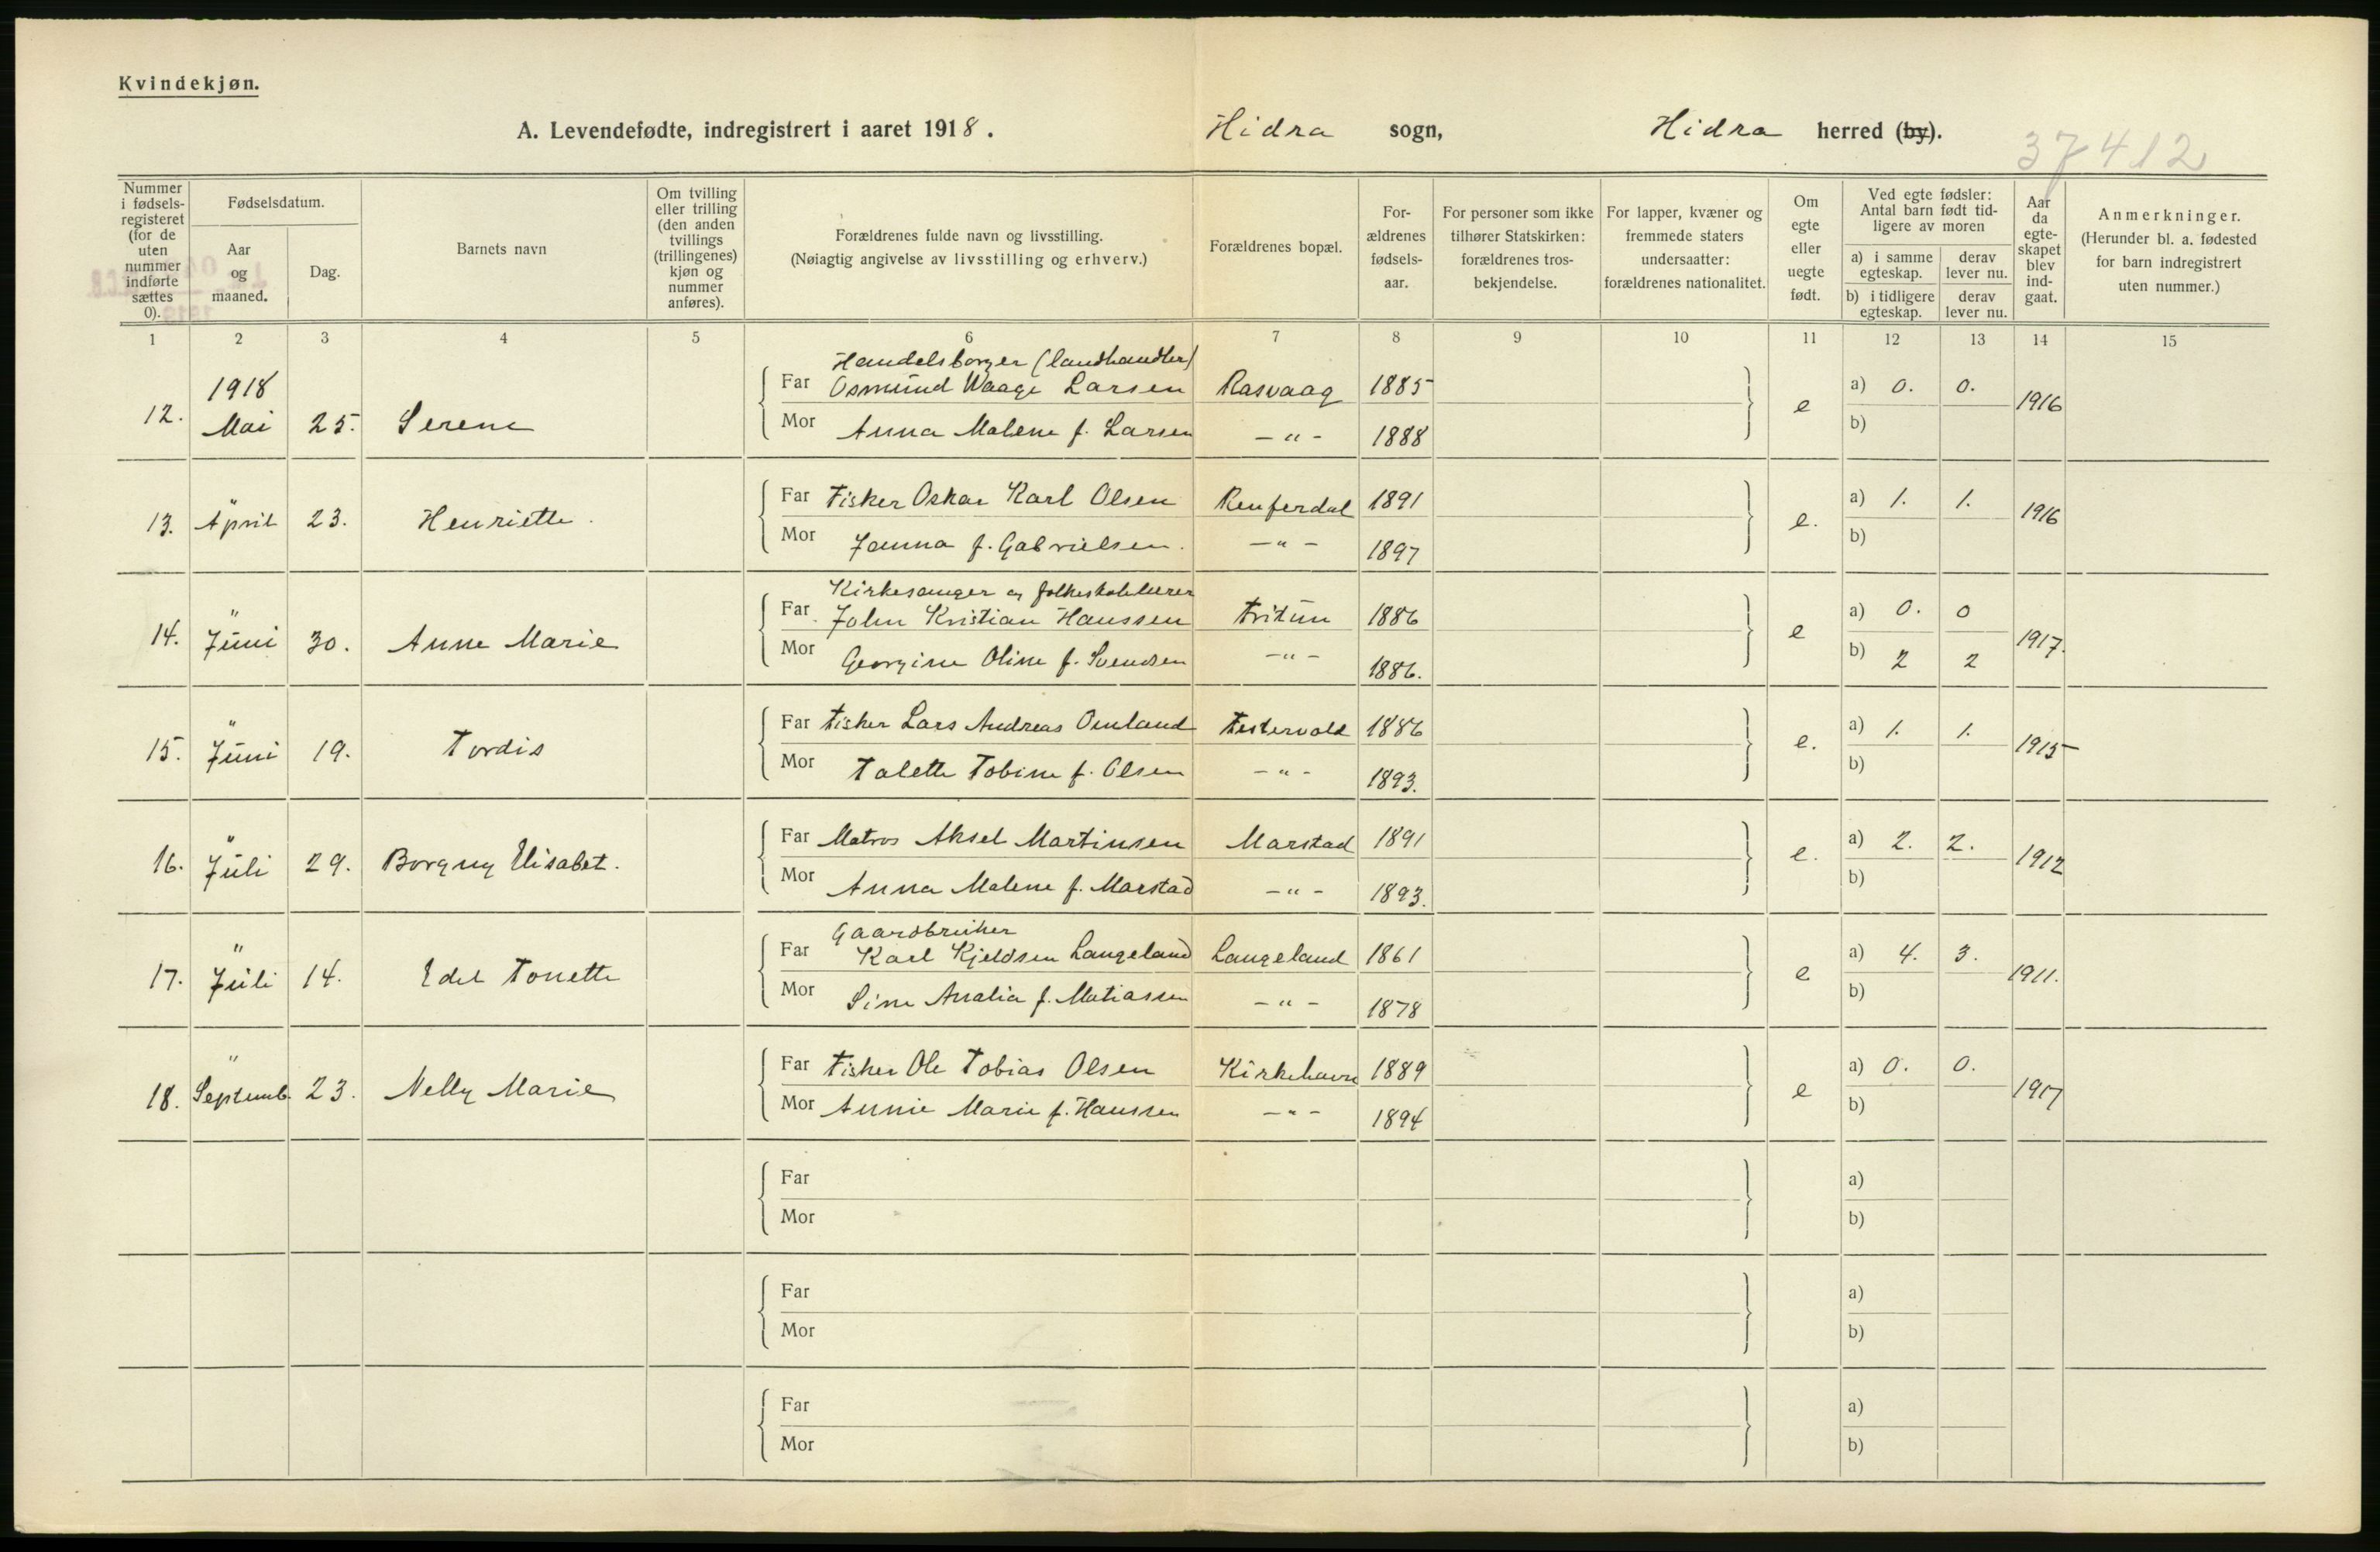 Kvindekjøn.
A. Levendefødte, indregistrert i aaret 1918. Hidra sogn, Hidra herred (by).
37412
Nummer i fødsels-registeret (for de uten nummer indførte sættes 0).
Fødselsdatum.
Aar og maaned.
Dag.
Barnets navn
Om tvilling eller trilling (den anden tvillings (trillingenes) kjøn og nummer anføres).
Forældrenes fulde navn og livsstilling.
(Nøiagtig angivelse av livsstilling og erhverv.)
Forældrenes bopæl.
For-ældrenes fødsels-aar.
For personer som ikke tilhører Statskirken: forældrenes tros-bekjendelse.
For lapper, kvæner og fremmede staters undersaatter: forældrenes nationalitet.
Om egte eller uegte født.
Ved egte fødsler: Antal barn født tid-ligere av moren
a) i samme egteskap.
derav lever nu.
b) i tidligere egteskap.
derav lever nu.
Aar da egte-skapet blev ind-gaat.
Anmerkninger.
(Herunder bl. a. fødested for barn indregistrert uten nummer.)
1 2 3 4 5 6 7 8 9 10 11 12 13 14 15
Handelsborger (landhandler)
12. 1918 Mai 25. Serene Far Osmund Waage Larsen Rasvaag 1885 e a) 0. 0. 1916
Mor Anna Malene f. Larsen —"— 1888 b)
13. " April 23. Henriette. Far Fisker Oskar Karl Olsen Renferdal 1891 e. a) 1. 1. 1916
Mor Janna f. Gabrielsen. —"— 1897 b)
Kirkesanger og folkeskolelærer
14. " Juni 30. Anne Marie Far John Kristian Hanssen 1886 e a) 0. 0 1917.
Mor Georgine Oline f. Svendsen —"— 1886. b) 2 2
15. " Juni 19. Tordis Far Fisker Lars Andreas Omland 1886 e. a) 1. 1. 1915
Mor Talette Tobine f. Olsen —"— 1893. b)
16. " Juli 29. Borgny Elisabet. Far Matros Aksel Martinsen Marstad 1891 e. a) 2. 2. 1912
Mor Anna Malene f. Marstad —"— 1893. b)
Gaardbruker
17. " Juli 14. Edel Tonette Far Karl Kjeldsen Langeland Langeland 1861 e a) 4. 3. 1911.
Mor Sine Amalia f. Matiassen —"— 1878 b)
18. " Septemb. 23. Nelly Marie Far Fisker Ole Tobias Olsen Kirkehavn 1889 e a) 0. 0. 1917
Mor Annie Marie f. Hanssen —"— 1894 b)
Far a)
Mor b)
Far a)
Mor b)
Far a)
Mor b)